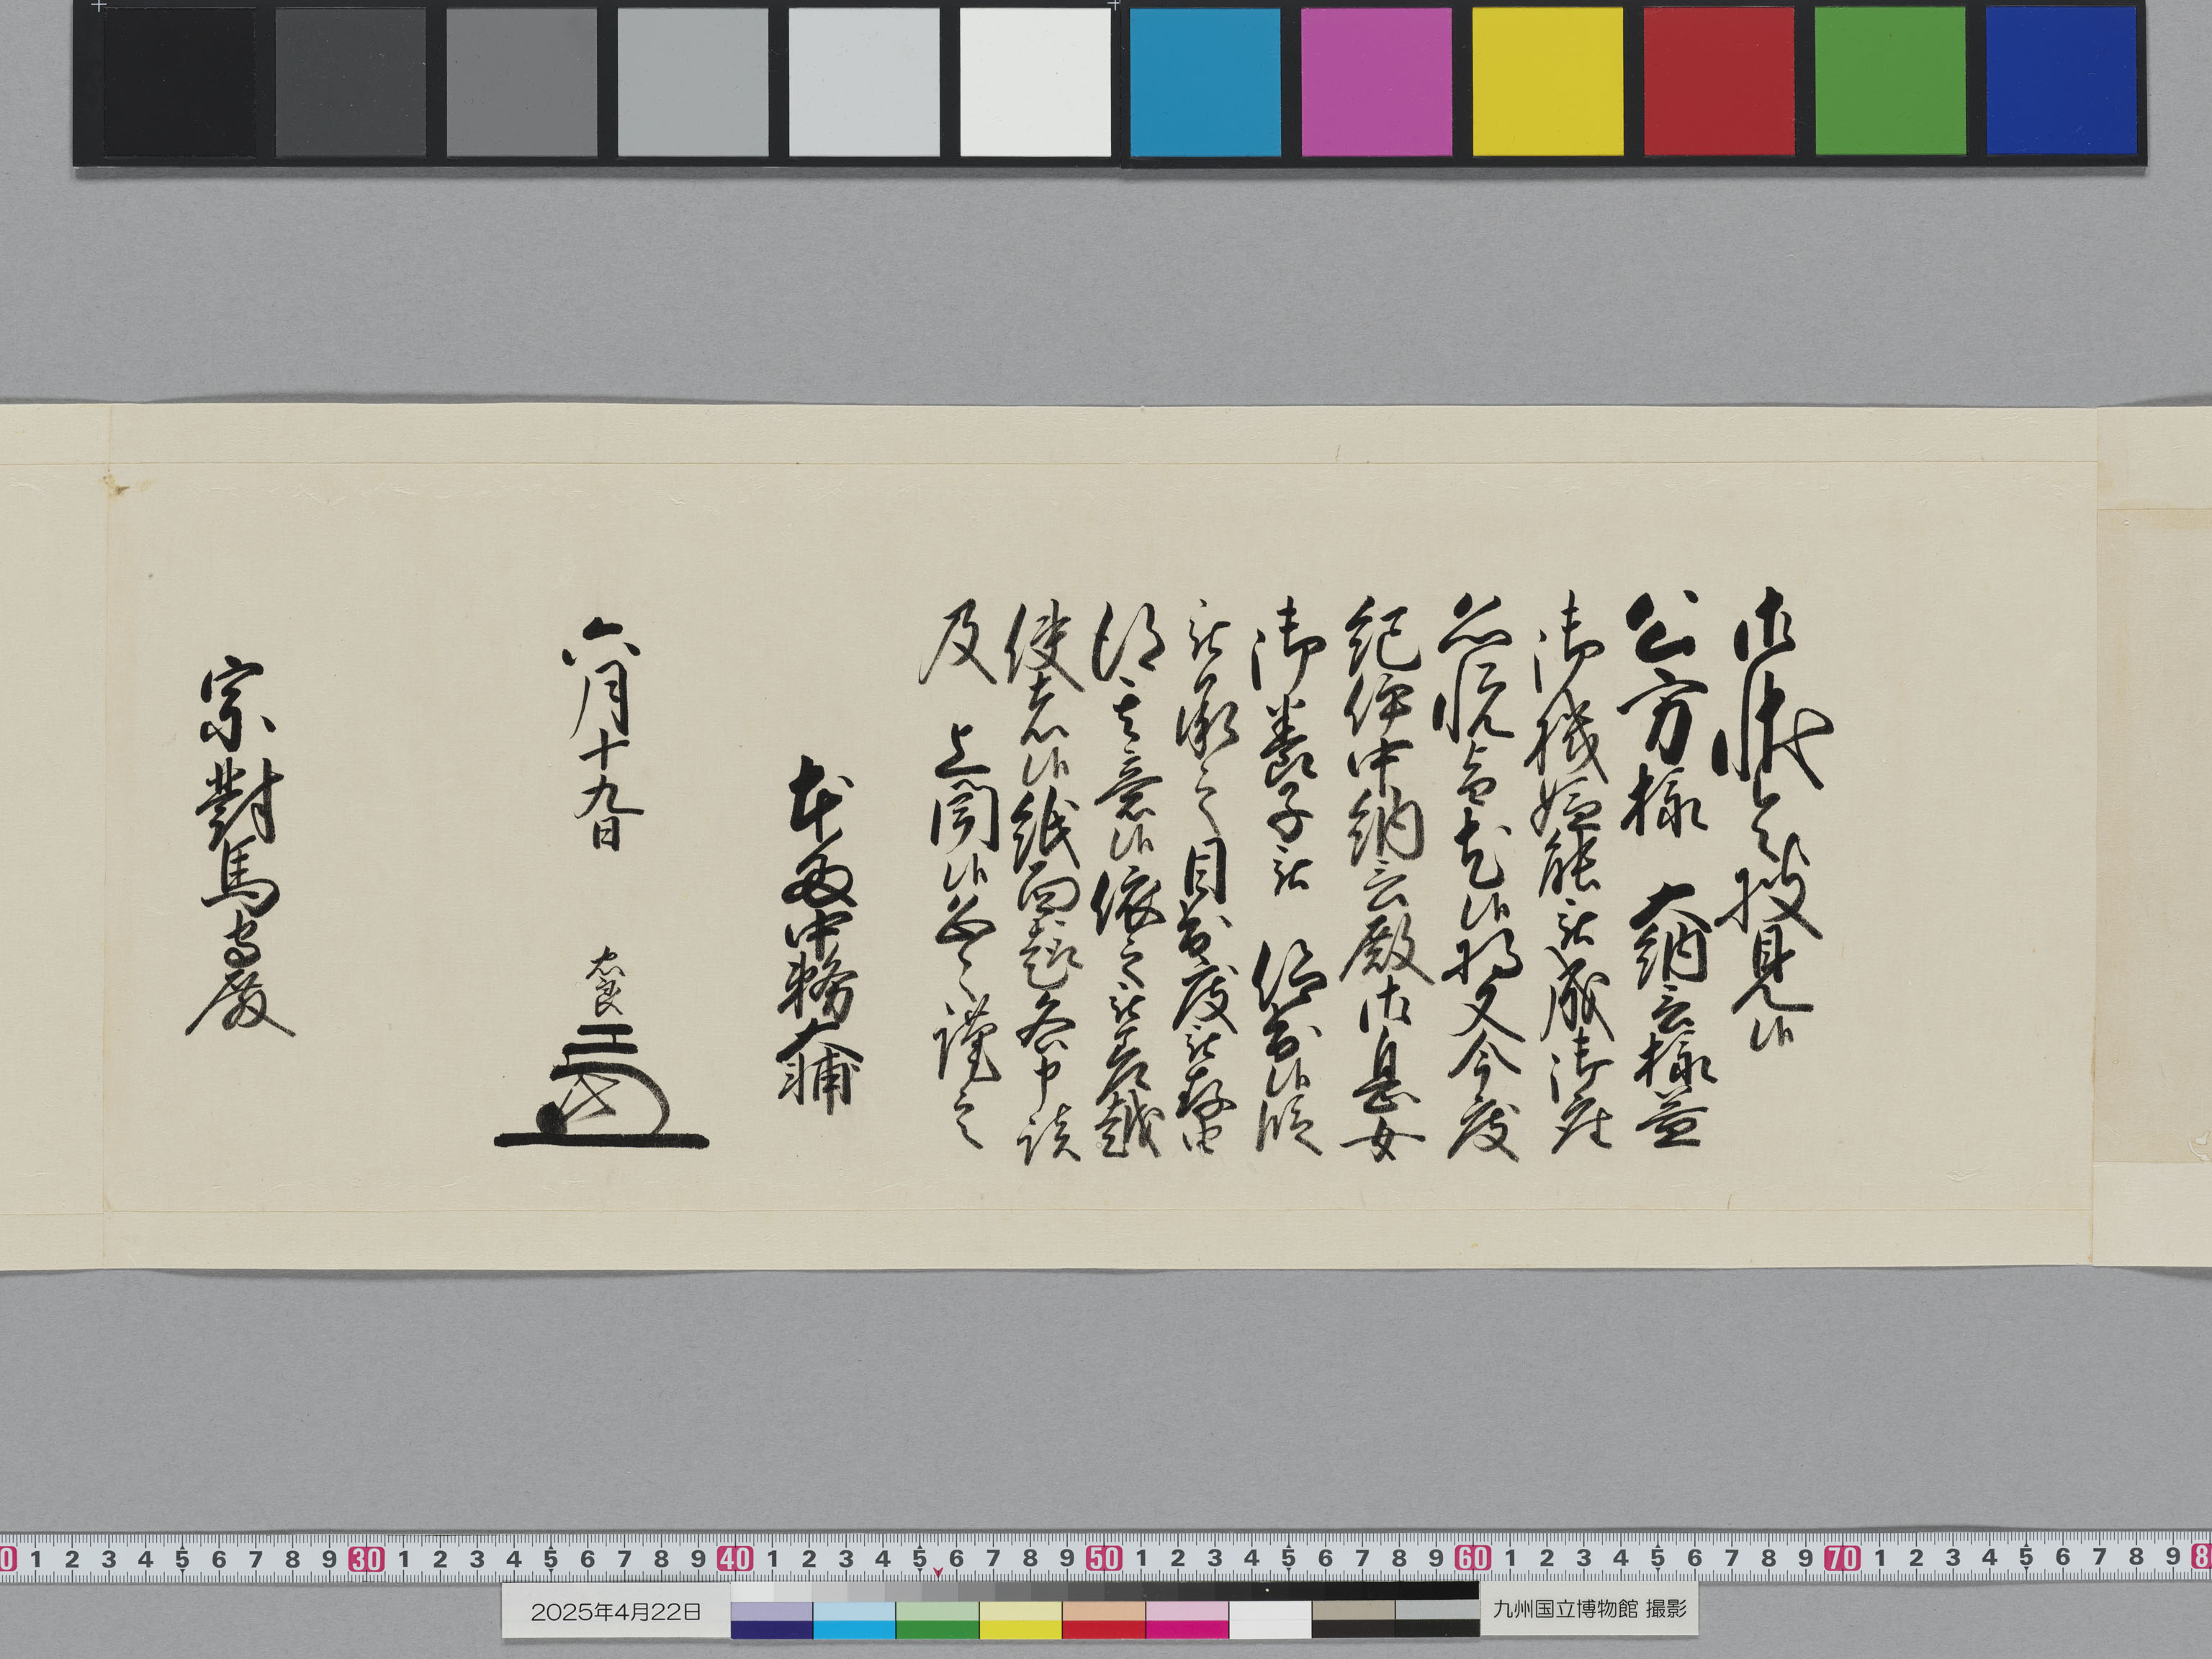 御状令披見候
公方様 大納言様益
御機嫌能被成御座
恐悦旨尤候将又今度
紀伊中納言殿御息女
御養子被 仰出候段
被承之目出度被存由
得其意候依之被差越
使者候紙面趣各申談
及 上聞候恐々謹言
本多中務大輔
六月十九日 忠良
宗對馬守殿
0 1 2 3 4 5 6 7 8 9 30 1 2 3 4 5 6 7 8 9 40 1 2 3 4 5 6 7 8 9 50 1 2 3 4 5 6 7 8 9 60 1 2 3 4 5 6 7 8 9 70 1 2 3 4 5 6 7 8 9 8
2025年4月22日
九州国立博物館 撮影